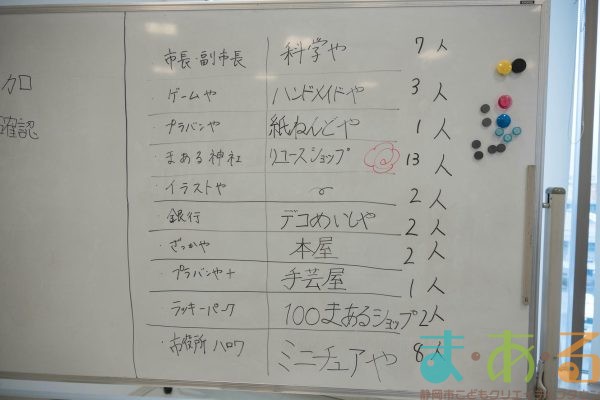 加
確認
市長・副市長 科学や 7人
・ゲームや ハンドメイドや 3人
・プラバンや 紙ねんどや 1人
・まある神社 リユースショップ 13人
・イラストや 〃 2人
・銀行 デコめいしや 2人
・ざっかや 本屋 2人
・プラバンや+ 手芸屋 1人
ラッキーパーク 100まあるショップ 2人
・市役所 ハロワ ミニチュアや 8人
ま・ある
静岡市こどもクリエイティブタウン